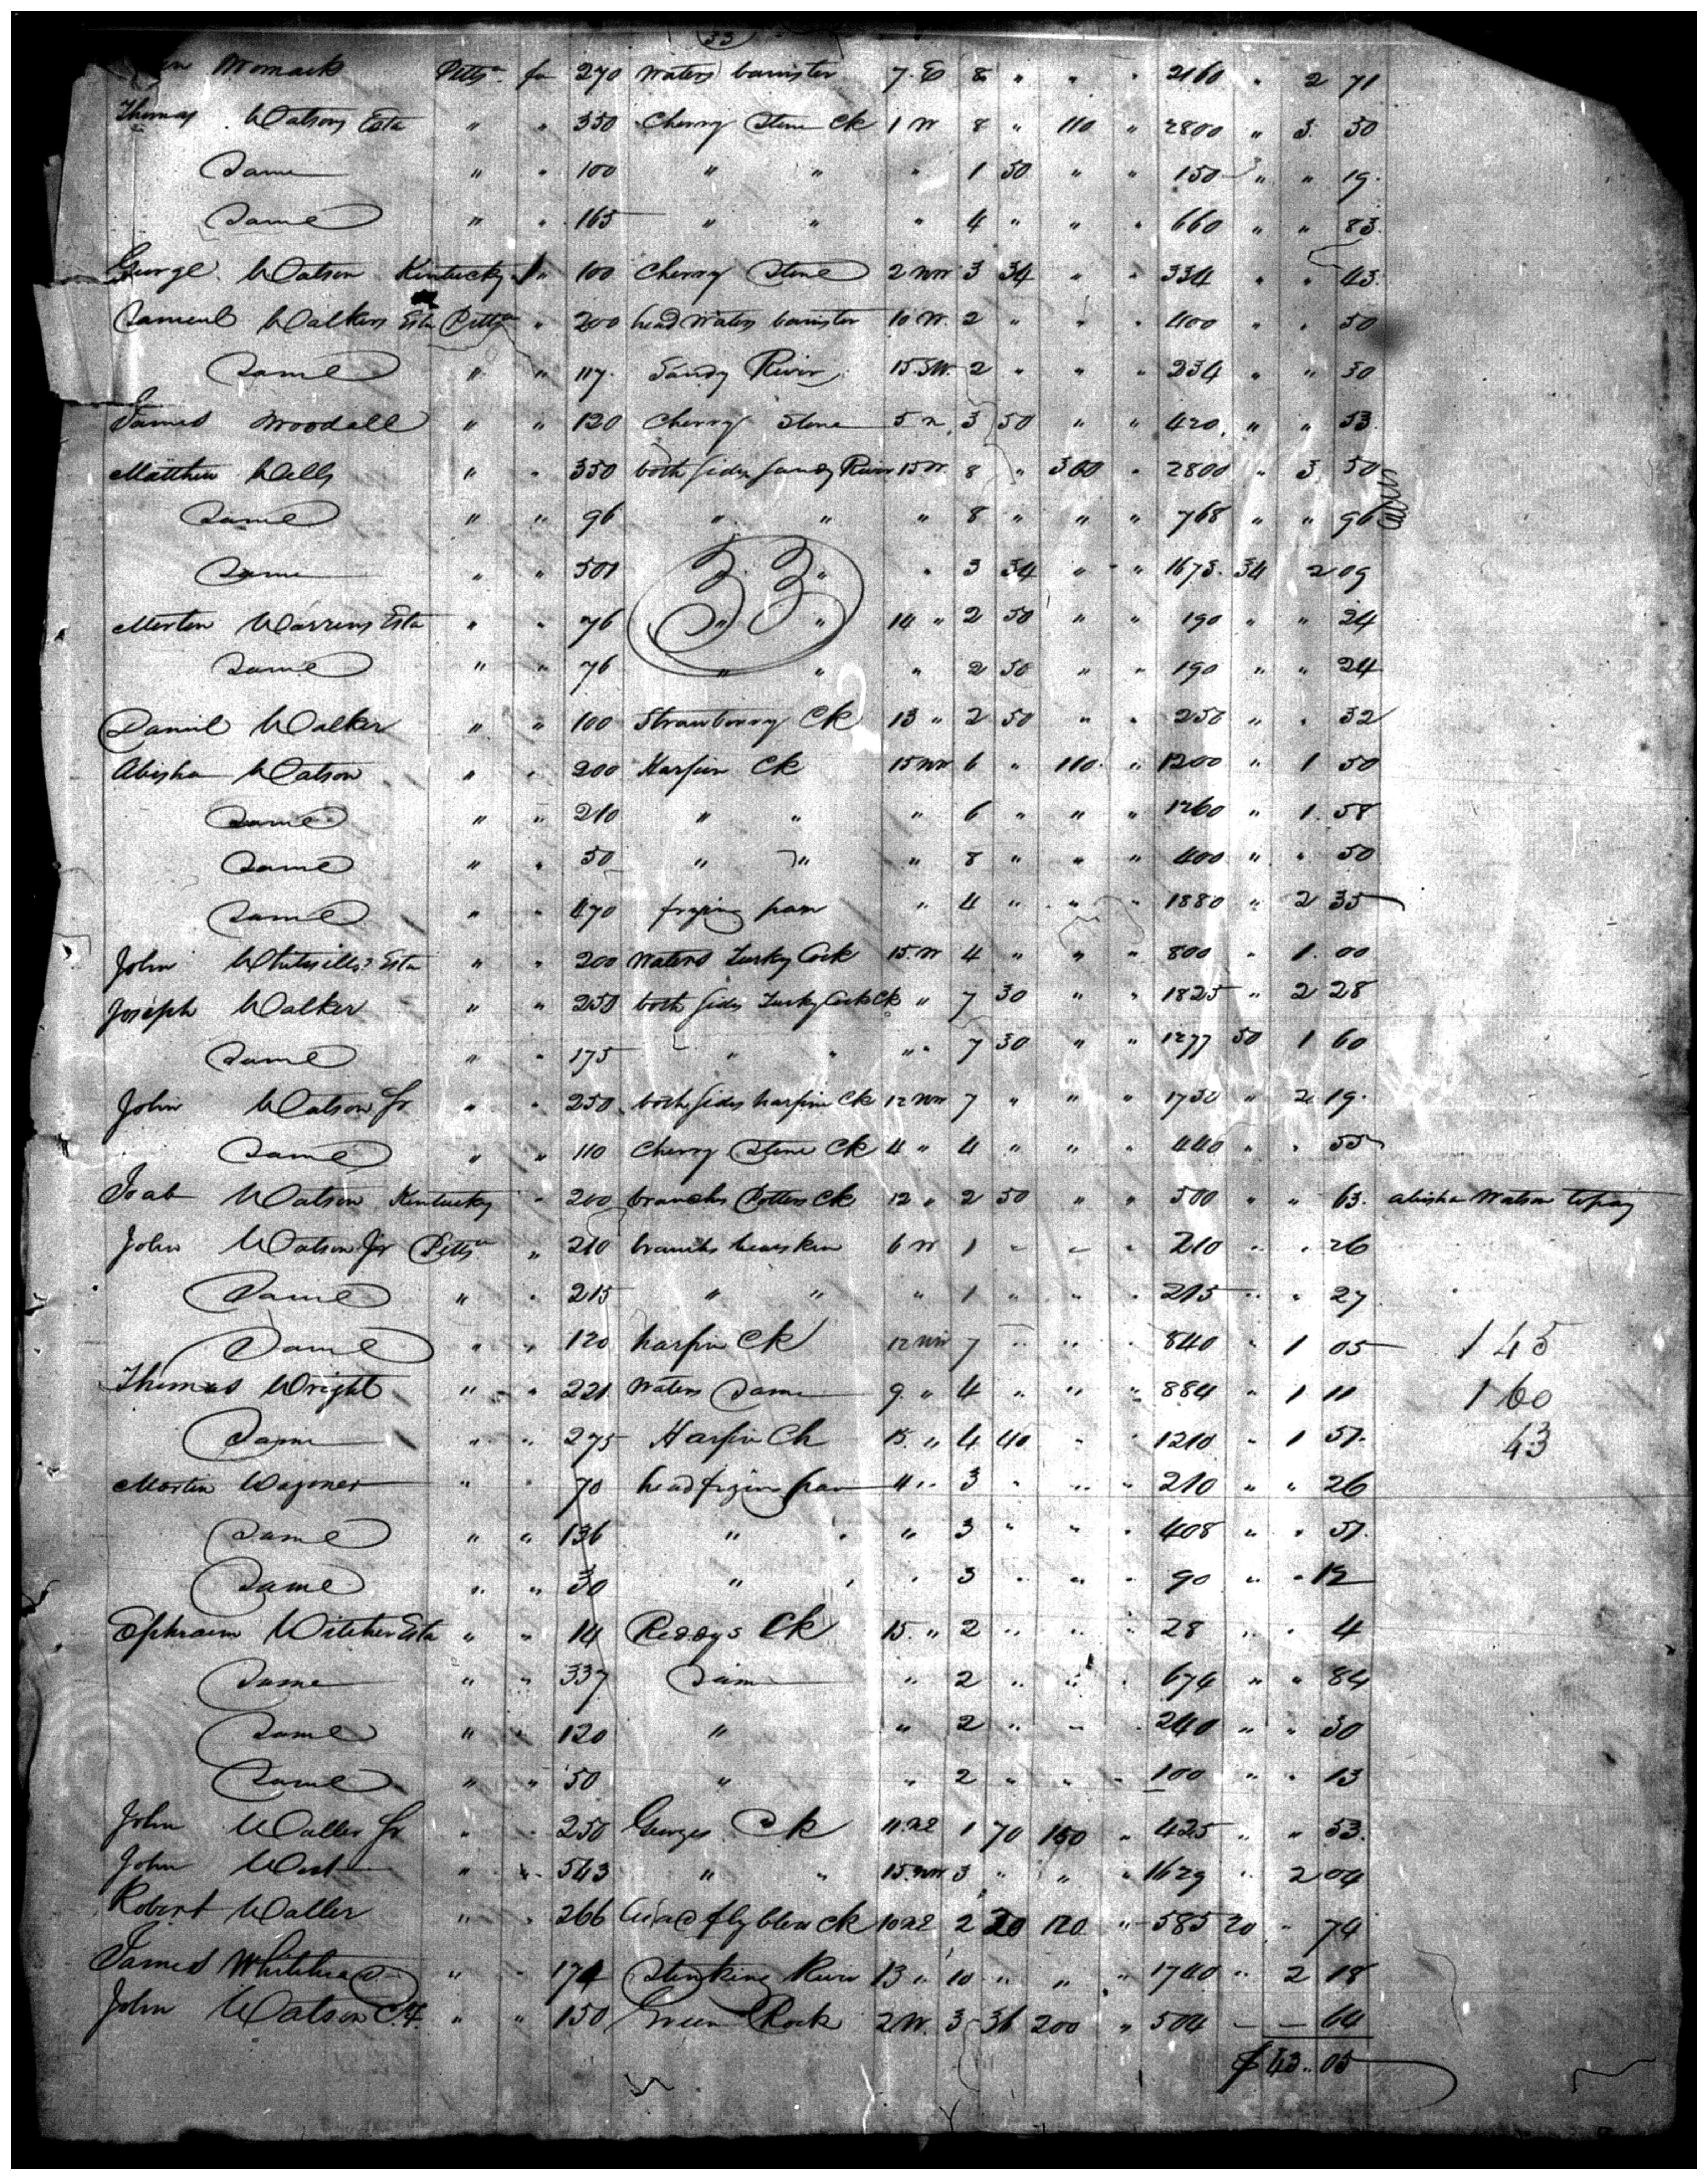 33
Womack Pittsa fee 270 Waters banister 7 E 8 " " " 2160 " 2 71
Thomas Watsons Esta " " 350 Cherry Stone Ck 1 W 8 " 110 " 2800 " 3 50
Same " " 100 " " " 1 50 " " 150 " " 19
Same " " 165 " " " 4 " " " 660 " " 83
George Watson Kentucky " 100 Cherry Stone 2 NW 3 34 " " 334 " " 43
Samuel Walkers Esta Pittsa " 200 head Waters banister 10 W. 2 " " " 400 " " 50
Same " " 117 Sandy River 15 SW. 2 " " " 234 " " 30
James Woodall " " 120 Cherry Stone 5 n 3 50 " " 420 " " 53
Matthew Wells " " 350 both sides Sandy River 15 W. 8 " 300 " 2800 " 3 50
Same " " 96 " " " 8 " " " 768 " " 96
Same " " 501 " " " 3 34 " " 1673 34 2 09
33
Merten Warrens Esta " " 76 " " 14 " 2 50 " " 190 " " 24
Same " " 76 " " " 2 50 " " 190 " " 24
Daniel Walker " " 100 Strawberry Ck 13 " 2 50 " " 250 " " 32
Abisha Watson " " 200 Harpin Ck 15 NW 6 " 110 " 1200 " 1 50
Same " " 210 " " " 6 " " " 1260 " 1 58
Same " " 50 " " " 8 " " " 400 " " 50
Same " " 470 frying pan " 4 " " " 1880 " 2 35
John Esta " " 200 Waters Turky Cock 15. W 4 " " " 800 " 1 00
Joseph Walker " " 250 both sides Turky Cock Ck " 7 30 " " 1825 " 2 28
Same " " 175 " " " 7 30 " " 1277 50 1 60
John Watson Sr " " 250 both sides harpin Ck 12 NW 7 " " " 1750 " 2 19
Same " " 110 Cherry Stone Ck 4 " 4 " " " 440 " " 55
Joab Watson Kentucky " 200 branches Potters Ck 12 " 2 50 " " 500 " " 63. abisha Watson to pay
John Watson Jr Pittsa " 210 branches bearskin 6 W 1 " " " 210 " " 26
Same " " 215 " " " 1 " " " 215 " " 27
Same " " 120 harpin Ck 12 NW 7 " " " 840 " 1 05 1 45
Thomas Wright " " 221 Waters Same 9 " 4 " " " 884 " 1 11 1 60
Same " " 275 Harpin Ck 15. " 4 40 " " 1210 " 1 51 43
Martin Wagoner " " 70 head frying pan 11 " 3 " " " 210 " " 26
Same " " 136 " " " 3 " " " 408 " " 51
Same " " 30 " " " 3 " " " 90 " " 12
Ephraim Witcher Esta " " 14 Reddys Ck 15. " 2 " " " 28 " " 4
Same " " 337 Same " 2 " " " 674 " " 84
Same " " 120 " " 2 " " " 240 " " 30
Same " " 50 " " 2 " " " 100 " " 13
John Waller Sr " " 250 Georges Ck 1 70 150 " 425 " " 53.
John West " " 543 " " 15. NW 3 " " " 1629 " 2 04
Robert Waller " " 266 flyblow Ck 2 20 120 " 585 20 " 74
James Whitehead " " 174 Stinking River 13 " 10 " " " 1740 " 2 18
John Watson C.H. " " 150 Green Rock 2 W. 3 36 200 " 504 — — 64
$ 43.. 05